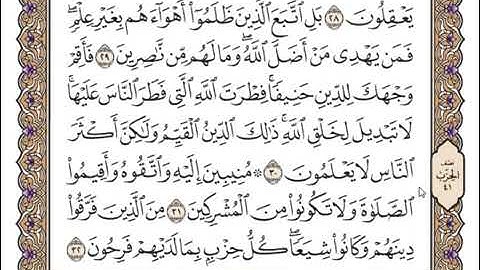 يَعْقِلُونَ ٢٨ بَلِ ٱتَّبَعَ ٱلَّذِينَ ظَلَمُوٓا۟ أَهْوَآءَهُم بِغَيْرِ عِلْمٍ ۖ
فَمَن يَهْدِى مَنْ أَضَلَّ ٱللَّهُ ۖ وَمَا لَهُم مِّن نَّـٰصِرِينَ ٢٩ فَأَقِمْ
وَجْهَكَ لِلدِّينِ حَنِيفًا ۚ فِطْرَتَ ٱللَّهِ ٱلَّتِى فَطَرَ ٱلنَّاسَ عَلَيْهَا ۚ
لَا تَبْدِيلَ لِخَلْقِ ٱللَّهِ ۚ ذَٰلِكَ ٱلدِّينُ ٱلْقَيِّمُ وَلَـٰكِنَّ أَكْثَرَ
ٱلنَّاسِ لَا يَعْلَمُونَ ٣٠ ۞ مُنِيبِينَ إِلَيْهِ وَٱتَّقُوهُ وَأَقِيمُوا۟
ٱلصَّلَوٰةَ وَلَا تَكُونُوا۟ مِنَ ٱلْمُشْرِكِينَ ٣١ مِنَ ٱلَّذِينَ فَرَّقُوا۟
دِينَهُمْ وَكَانُوا۟ شِيَعًا ۖ كُلُّ حِزْبٍۭ بِمَا لَدَيْهِمْ فَرِحُونَ ٣٢
نصف
الحزب
٤١